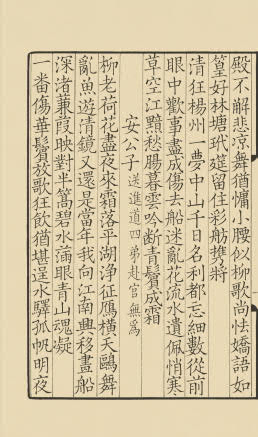 殿不解悲涼舞猶慵小腰似柳歌尚怯嬌語如
篁好林塘玳筵留住彩舫㩦將
清狂楊州一夢中山千日名利都忘細數從前
眼中歡事盡成傷去船迷亂花流水遺佩悄寒
草空江顥愁腸暮雲吟斷青鬢成霜
安公子送進道四弟赴官無為
柳老荷花盡夜來霜落平湖浄征鴈横天鷗舞
亂魚遊清鏡又還是當年我向江南興移畫船
深渚蒹葭映對半篙碧水滿眼青山魂凝
一畨傷華鬢放歌狂飲猶堪逞水驛孤帆明夜